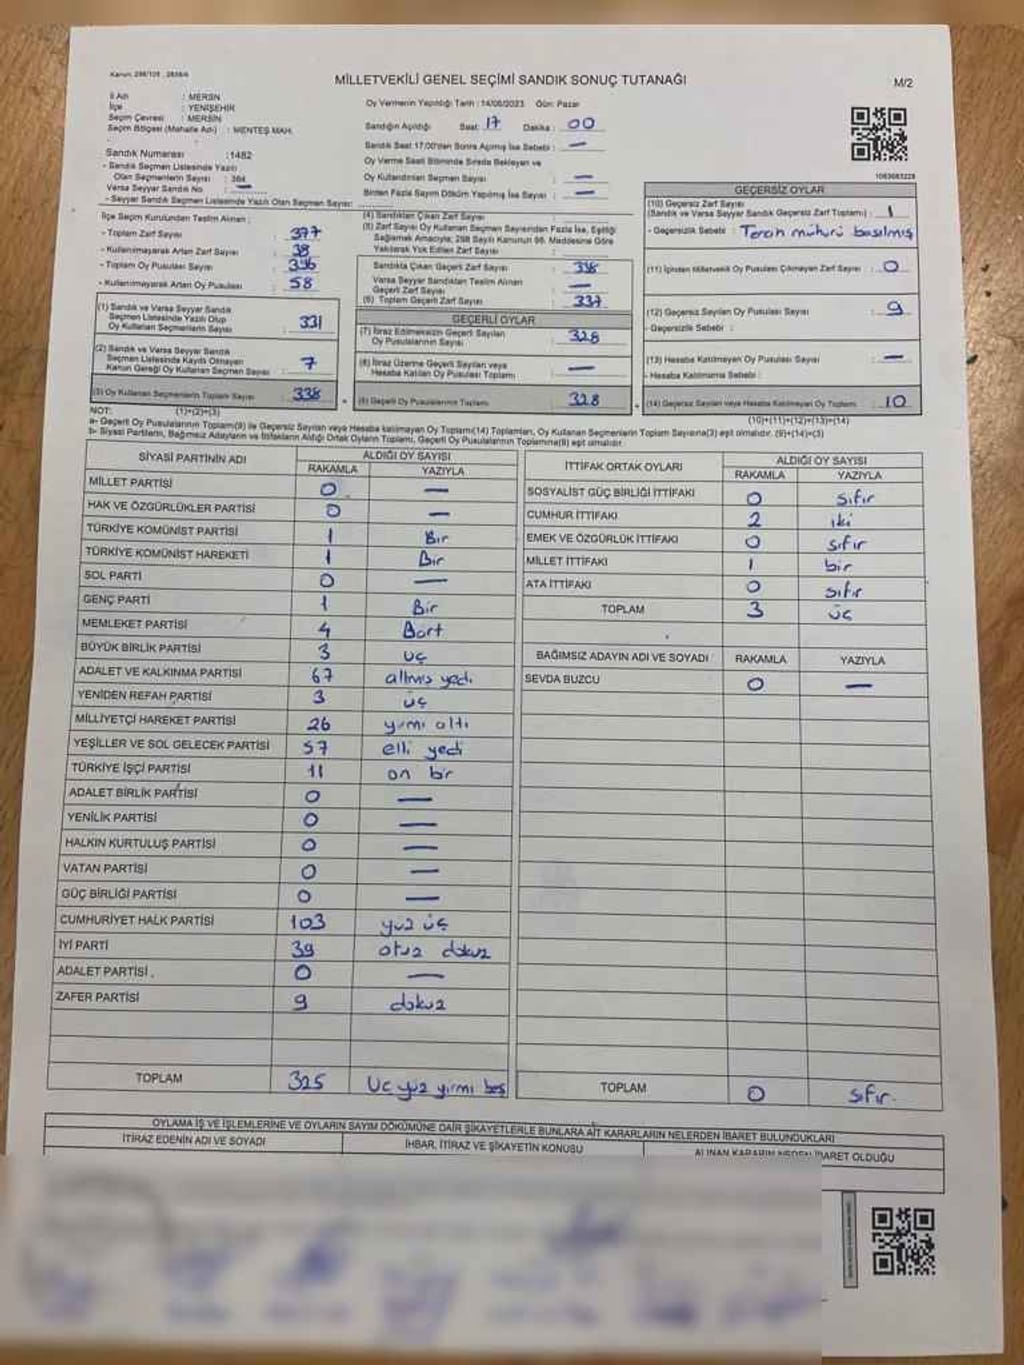 Kanun: 298/105 , 2839/4
MİLLETVEKİLİ GENEL SEÇİMİ SANDIK SONUÇ TUTANAĞI
M/2
İl Adı : MERSİN
İlçe : YENİŞEHİR
Seçim Çevresi : MERSİN
Seçim Bölgesi (Mahalle Adı) : MENTEŞ MAH.
Sandık Numarası :1482
- Sandık Seçmen Listesinde Yazılı
Olan Seçmenlerin Sayısı : 364
Varsa Seyyar Sandık No : —
- Seyyar Sandık Seçmen Listesinde Yazılı Olan Seçmen Sayısı:
Oy Vermenin Yapıldığı Tarih : 14/05/2023 Gün: Pazar
Sandığın Açıldığı Saat: 17 Dakika : 00
Sandık Saat 17.00'den Sonra Açılmış İse Sebebi : —
Oy Verme Saati Bitiminde Sırada Bekleyen ve
Oy Kullandırılan Seçmen Sayısı : —
Birden Fazla Sayım Döküm Yapılmış İse Sayısı : —
1083683228
İlçe Seçim Kurulundan Teslim Alınan :
- Toplam Zarf Sayısı : 377
- Kullanılmayarak Artan Zarf Sayısı : 38
- Toplam Oy Pusulası Sayısı : 396
- Kullanılmayarak Artan Oy Pusulası : 58
(1) Sandık ve Varsa Seyyar Sandık
Seçmen Listesinde Yazılı Olup
Oy Kullanan Seçmenlerin Sayısı : 331
(2) Sandık ve Varsa Seyyar Sandık
Seçmen Listesinde Kayıtlı Olmayan
Kanun Gereği Oy Kullanan Seçmen Sayısı : 7
(3) Oy Kullanan Seçmenlerin Toplam Sayısı : 338
(4) Sandıktan Çıkan Zarf Sayısı :
(5) Zarf Sayısı Oy Kullanan Seçmen Sayısından Fazla İse, Eşitliği
Sağlamak Amacıyla; 298 Sayılı Kanunun 98. Maddesine Göre
Yakılarak Yok Edilen Zarf Sayısı :
Sandıkta Çıkan Geçerli Zarf Sayısı : 338
Varsa Seyyar Sandıktan Teslim Alınan
Geçerli Zarf Sayısı : —
(6) Toplam Geçerli Zarf Sayısı : 337
GEÇERLİ OYLAR
(7) İtiraz Edilmeksizin Geçerli Sayılan
Oy Pusulalarının Sayısı : 328
(8) İtiraz Üzerine Geçerli Sayılan veya
Hesaba Katılan Oy Pusulası Toplamı : —
(9) Geçerli Oy Pusulalarının Toplamı : 328
GEÇERSİZ OYLAR
(10) Geçersiz Zarf Sayısı
(Sandık ve Varsa Seyyar Sandık Geçersiz Zarf Toplamı) : 1
- Geçersizlik Sebebi : Tercih mührü basılmış
(11) İçinden Milletvekili Oy Pusulası Çıkmayan Zarf Sayısı : 0
(12) Geçersiz Sayılan Oy Pusulası Sayısı : 9
- Geçersizlik Sebebi :
(13) Hesaba Katılmayan Oy Pusulası Sayısı : —
- Hesaba Katılmama Sebebi :
(14) Geçersiz Sayılan veya Hesaba Katılmayan Oy Toplamı : 10
NOT: (1)+(2)=(3) (10)+(11)+(12)+(13)=(14)
a- Geçerli Oy Pusulalarının Toplamı(9) ile Geçersiz Sayılan veya Hesaba katılmayan Oy Toplamı(14) Toplamları, Oy Kullanan Seçmenlerin Toplam Sayısına(3) eşit olmalıdır. (9)+(14)=(3)
b- Siyasi Partilerin, Bağımsız Adayların ve İttifakların Aldığı Ortak Oyların Toplamı, Geçerli Oy Pusulalarının Toplamına(9) eşit olmalıdır.
SİYASİ PARTİNİN ADI ALDIĞI OY SAYISI
RAKAMLA YAZIYLA
MİLLET PARTİSİ 0 —
HAK VE ÖZGÜRLÜKLER PARTİSİ 0 —
TÜRKİYE KOMÜNİST PARTİSİ 1 Bir
TÜRKİYE KOMÜNİST HAREKETİ 1 Bir
SOL PARTİ 0 —
GENÇ PARTİ 1 Bir
MEMLEKET PARTİSİ 4 Dört
BÜYÜK BİRLİK PARTİSİ 3 üç
ADALET VE KALKINMA PARTİSİ 67 altmış yedi
YENİDEN REFAH PARTİSİ 3 üç
MİLLİYETÇİ HAREKET PARTİSİ 26 yirmi altı
YEŞİLLER VE SOL GELECEK PARTİSİ 57 elli yedi
TÜRKİYE İŞÇİ PARTİSİ 11 on bir
ADALET BİRLİK PARTİSİ 0 —
YENİLİK PARTİSİ 0 —
HALKIN KURTULUŞ PARTİSİ 0 —
VATAN PARTİSİ 0 —
GÜÇ BİRLİĞİ PARTİSİ 0 —
CUMHURİYET HALK PARTİSİ 103 yüz üç
İYİ PARTİ 39 otuz dokuz
ADALET PARTİSİ 0 —
ZAFER PARTİSİ 9 dokuz
TOPLAM 325 Üç yüz yirmi beş
İTTİFAK ORTAK OYLARI ALDIĞI OY SAYISI
RAKAMLA YAZIYLA
SOSYALİST GÜÇ BİRLİĞİ İTTİFAKI 0 sıfır
CUMHUR İTTİFAKI 2 iki
EMEK VE ÖZGÜRLÜK İTTİFAKI 0 sıfır
MİLLET İTTİFAKI 1 bir
ATA İTTİFAKI 0 sıfır
TOPLAM 3 üç
BAĞIMSIZ ADAYIN ADI VE SOYADI RAKAMLA YAZIYLA
SEVDA BUZCU 0 —
TOPLAM 0 sıfır
OYLAMA İŞ VE İŞLEMLERİNE VE OYLARIN SAYIM DÖKÜMÜNE DAİR ŞİKAYETLERLE BUNLARA AİT KARARLARIN NELERDEN İBARET BULUNDUKLARI
İTİRAZ EDENİN ADI VE SOYADI İHBAR, İTİRAZ VE ŞİKAYETİN KONUSU ALINAN KARARIN NEDEN İBARET OLDUĞU